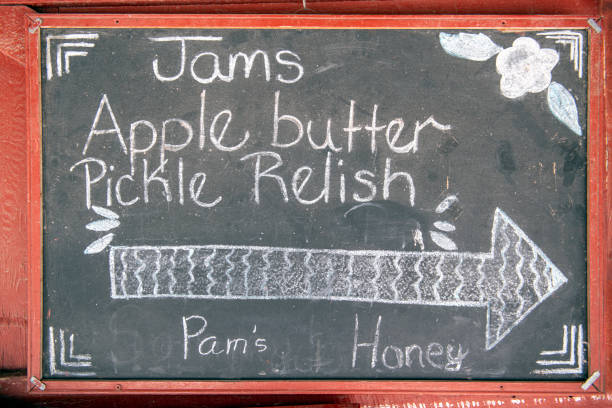 Jams
Apple butter
Pickle Relish
Pam's Honey